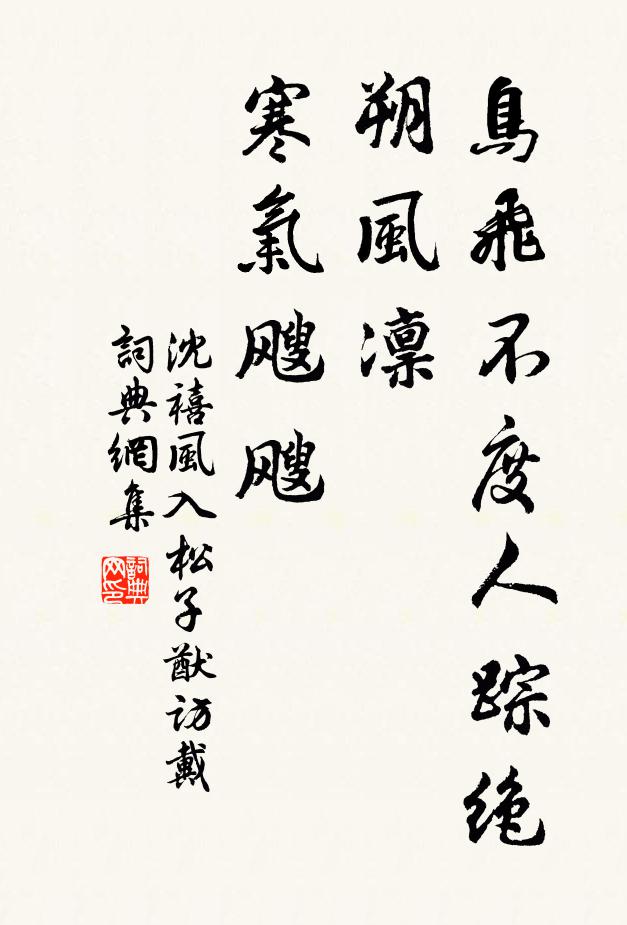 鳥飛不度人踪绝
朔風凛
寒氣飕飕
沈禧風入松子猷訪戴
詞典網集
詞典网印